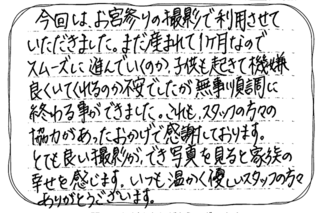 今回は、お宮参りの撮影で利用させて
いただきました。まだ産まれて1ヶ月なので
スムーズに進んでいくのか、子供も起きて機嫌
良くいてくれるのか不安でしたが無事順調に
終わる事ができました。これも、スタッフの方々の
協力があったおかげで感謝しております。
とても良い撮影ができ写真を見ると家族の
幸せを感じます。いつも温かく優しいスタッフの方々
ありがとうございます。